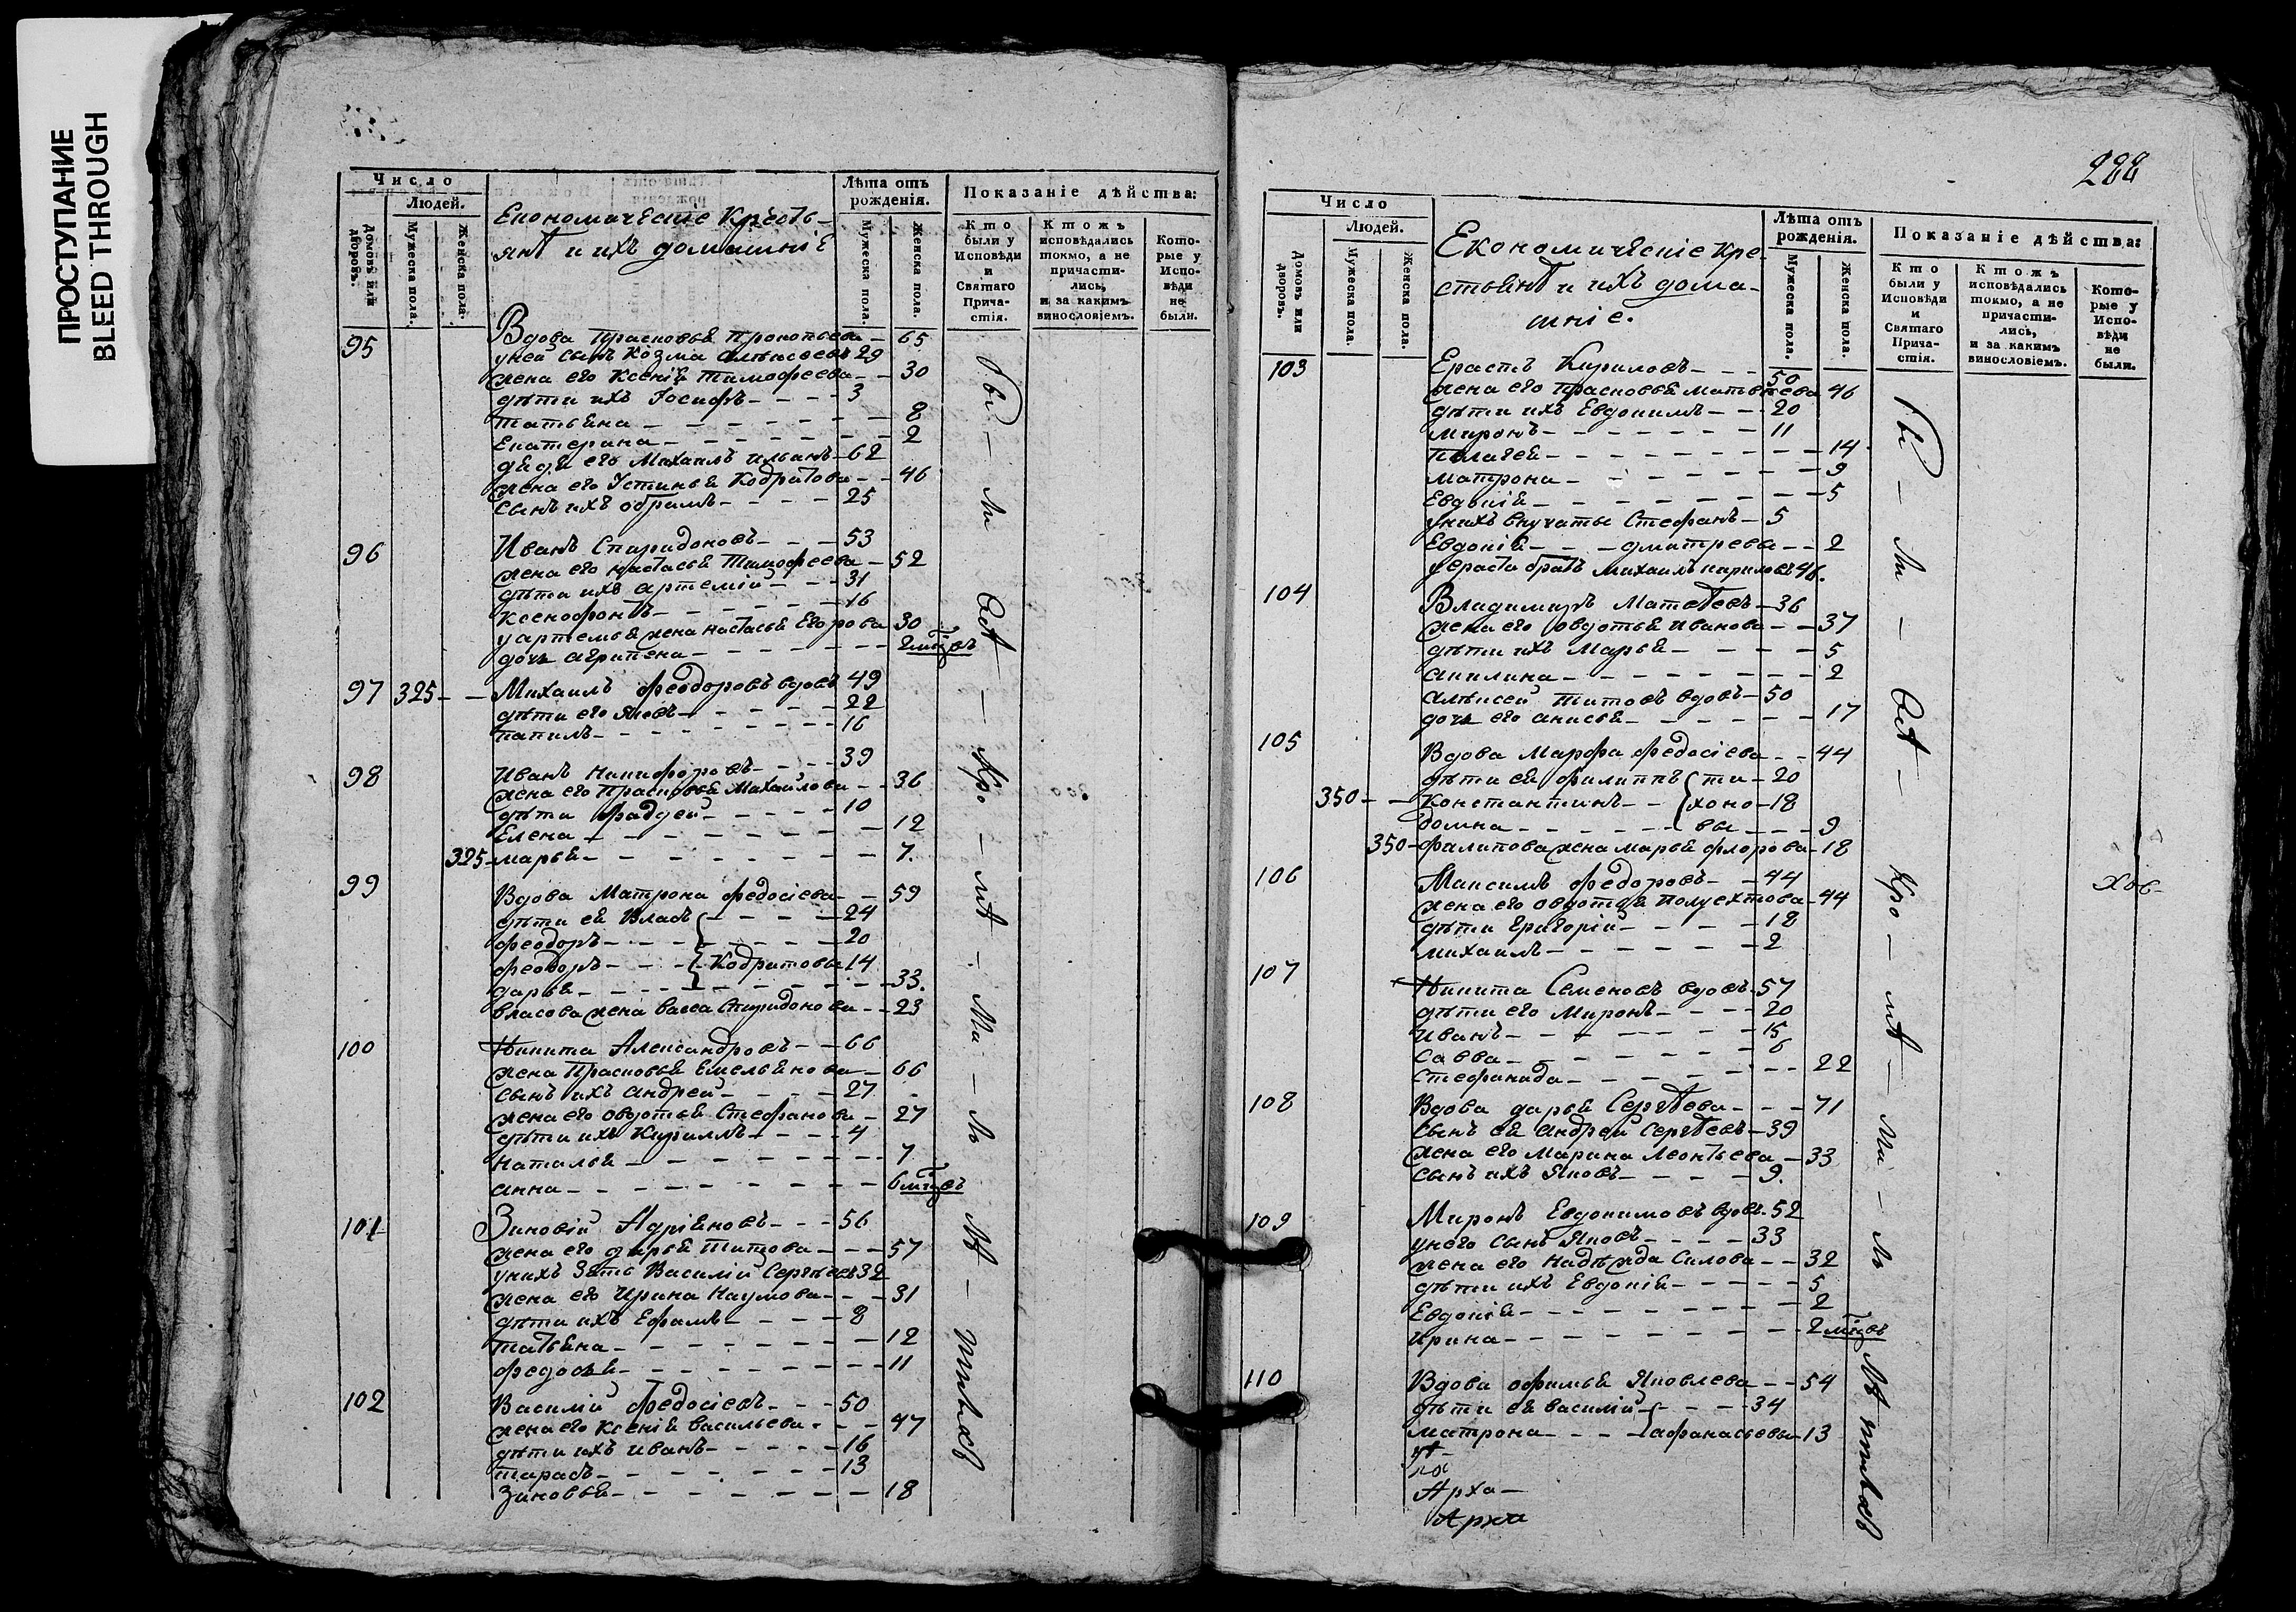 ПРОСТУПАНИЕ
BLEED THROUGH
Число
Людей.
Домовъ или дворовъ.
Мужеска пола.
Женска пола.
Економические Кресть-
янѣ и ихъ домашніе
Лѣта отъ рожденія.
Мужеска пола.
Женска пола.
Показаніе дѣйства:
Кто были у Исповѣди и Святаго Прича- стія.
Ктожъ исповѣдались токмо, а не причасти- лись, и за какимъ винословіемъ.
Кото- рые у Испо- вѣди не были.
95 Вдова Прасковья Прокопьева - 65
уней сынъ Козма Алѣксеевъ 29
жена его Ксенія Тимофеева - - 30
дѣти ихъ Іосифъ - - - - 3
Татьяна - - - - - - - 8
Екатерина - - - - - - - 2
дядя его Михаилъ - 62
жена его Устинья Кодратова - - 46
сынъ ихъ - - - - 25
96 Иванъ Спиридоновъ - - - 53
жена его Настасья Тимофеева - 52
дѣти ихъ Артемій - - - 31
Ксенофонтъ - - - - - - 16
у Артемья жена Настасья Егорова 30
дочь Агрипена - - - - - - - 2 мцовъ
97 325 - - Михаилъ Феодоровъ вдовъ 49
дѣти его Яковъ - - - - - 22
- - - - - - - 16
98 Иванъ Никифоровъ - - - - 39
жена его Прасковья Михайлова - - 36
дѣти Фаддей - - - - - 10
Елена - - - - - - - - 12
325 - Марья - - - - - - - 7.
99 Вдова Матрона Федосіева - - 59
дѣти ея Власъ - - - - 24
Феодоръ - - - - - - - 20
Феодоръ - - - - Кодратовы 14
Дарья - - - - - - - - 33.
Власова жена Васса Спиридонова - - 23
100 Никита Александровъ - - 66
жена Прасковья Емельянова - 66
сынъ ихъ Андрей - - - - 27
жена его Овдотья Стефанова - 27
дѣти ихъ Кириллъ - - - - 4
Наталья - - - - - - - 7
Анна - - - - - - - - 6 мцовъ
101 Зиновій Адріяновъ - - - 56
жена его Дарья Титова - - - 57
унихъ Зять Василій Сергѣевъ 32
жена его Ирина Наумова - - - 31
дѣти ихъ Ефимъ - - - - 8
Татьяна - - - - - - - 12
Федосья - - - - - - - 11
102 Василій Федосіевъ - - - 50
жена его Ксенія Васильева - - - 47
дѣти ихъ Иванъ - - - - - 16
Тарасъ - - - - - - - 13
Зиновья - - - - - - - 18
Число
Людей.
Домовъ или дворовъ.
Мужеска пола.
Женска пола.
Економическіе кре-
стьянѣ и ихъ дома-
шніе.
Лѣта отъ рожденія.
Мужеска пола.
Женска пола.
Показаніе дѣйства:
Кто были у Исповѣди и Святаго Прича- стія.
Ктожъ исповѣдались токмо, а не причасти- лись, и за какимъ винословіемъ.
Кото- рые у Испо- вѣди не были.
103 Ерастъ Кириловъ - - - 50
жена его Прасковья Матвѣева 46
дѣти ихъ Евдокимъ - - 20
Миронъ - - - - - - - 11
Пелагея - - - - - - - - 14
Матрона - - - - - - - 9
Евдокія - - - - - - - 5
унихъ внучаты Стефанъ - 5
Евдокія - - - Дмитревы - - 2
у Ераста братъ Михаилъ Кириловъ 46.
104 Владимиръ Матвѣевъ - 36
жена его Овдотья Иванова - - 37
дѣти ихъ Марья - - - - 5
Акилина - - - - - - - - 2
Алѣксей Титовъ вдовъ - 50
дочь его Анисья - - - - - - 17
105 Вдова Марфа Федосіева - - 44
дѣти ея Филиппъ ти - 20
350 - - Константинъ - - хоно - 18
Домна - - - - - - вы - - - 9
350 - Филипова жена Марья Флорова - 18
106 Максимъ Федоровъ - - 44
жена его Овдотья Полуехтова - 44
дѣти Григорій - - - - 18
Михаилъ - - - - - - 2
107 Никита Семеновъ вдовъ - 57
дѣти его Миронъ - - - - 20
Иванъ - - - - - - - 15
Савва - - - - - - - 6
Стефанида - - - - - - - 22
108 Вдова Дарья Сергѣева - - - 71
сынъ ея Андрей Сергѣевъ - 39
жена его Марина Леонтьева - 33
сынъ ихъ Яковъ - - - - - 9.
109 Миронъ Евдокимовъ вдовъ - 52
унего сынъ Яковъ - - - - 33
жена его Надѣжда Силова - - 32
дѣти ихъ Евдокія - - - - - 5
Евдокія - - - - - - - - 2
Ирина - - - - - - - - 2 мцовъ
110 Вдова Офимья Яковлева - - 54
дѣти ея Василій - - - - 34
Матрона - - - - Афанасьевы - 13
Арха -
Арха